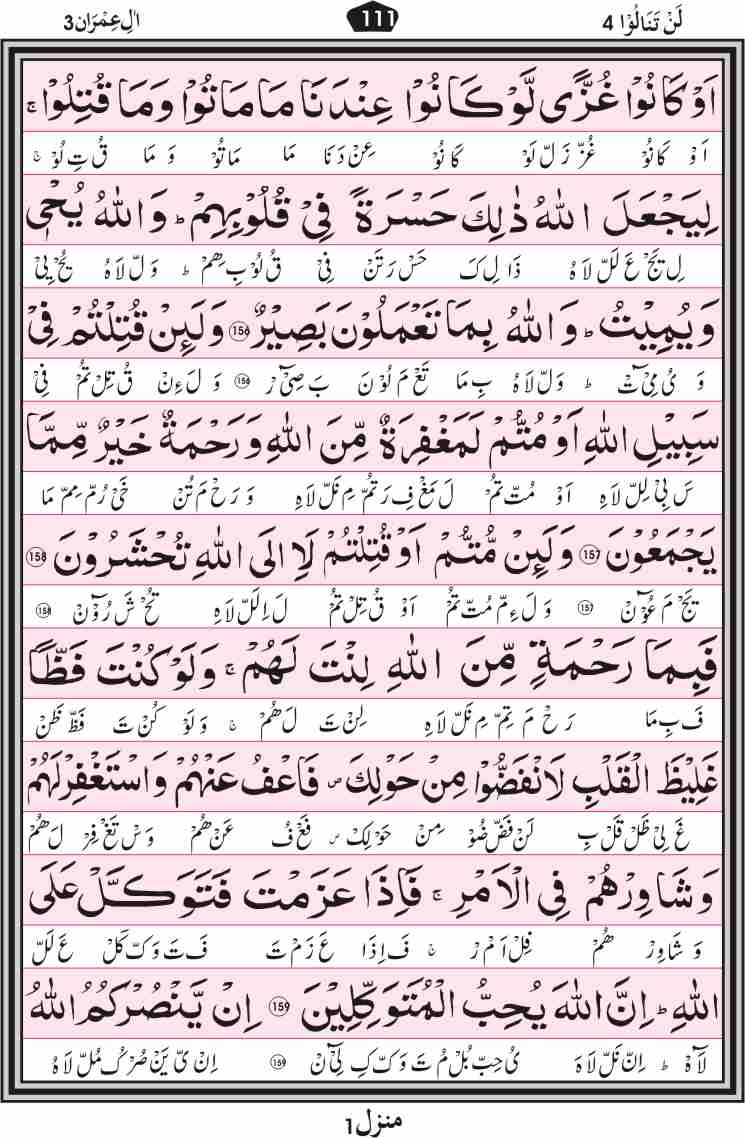 لَنْ تَنَالُوْا 4 111 اٰلِ عِمْرَان 3
اَوْ كَانُوْا غُزًّى لَّوْ كَانُوْا عِنْدَنَا مَا مَاتُوْا وَمَا قُتِلُوْا ۚ
اَوْ كَانُوْ غُزْ زَلْ لَوْ كَانُوْ عِنْ دَنَا مَا مَاتُوْ وَ مَا قُ تِ لُوْ ۚ
لِيَجْعَلَ اللّٰهُ ذٰلِكَ حَسْرَةً فِيْ قُلُوْبِهِمْ ؕ وَاللّٰهُ يُحْيٖ
لِ يَجْ عَ لَلْ لَاهُ ذَا لِ كَ حَسْ رَتَنْ فِيْ قُ لُوْ بِ هِمْ ؕ وَلْ لَاهُ يُحْ يِيْ
وَيُمِيْتُ ؕ وَاللّٰهُ بِمَا تَعْمَلُوْنَ بَصِيْرٌ 156 وَلَىِٕنْ قُتِلْتُمْ فِيْ
وَ يُ مِيْٓ تْ ؕ وَلْ لَاهُ بِ مَا تَعْ مَ لُوْ نَ بَ صِيْٓ رْ 156 وَ لَ ءِنْ قُ تِلْ تُمْ فِيْ
سَبِيْلِ اللّٰهِ اَوْ مُتُّمْ لَمَغْفِرَةٌ مِّنَ اللّٰهِ وَرَحْمَةٌ خَيْرٌ مِّمَّا
سَ بِيْ لِلْ لَاهِ اَوْ مُتْ تُمْ لَ مَغْ فِ رَ تُمْ مِ نَلْ لَاهِ وَ رَحْ مَ تُنْ خَيْ رُمْ مِمْ مَا
يَجْمَعُوْنَ 157 وَلَىِٕنْ مُّتُّمْ اَوْ قُتِلْتُمْ لَاِ۟الَى اللّٰهِ تُحْشَرُوْنَ 158
يَجْ مَ عُوْٓ نْ 157 وَ لَ ءِمْ مُتْ تُمْ اَوْ قُ تِلْ تُمْ لَ اِ لَلْ لَاهِ تُحْ شَ رُوْٓ نْ 158
فَبِمَا رَحْمَةٍ مِّنَ اللّٰهِ لِنْتَ لَهُمْ ۚ وَلَوْ كُنْتَ فَظًّا
فَ بِ مَا رَحْ مَ تِمْ مِ نَلْ لَاهِ لِنْ تَ لَ هُمْ ۚ وَ لَوْ كُنْ تَ فَظْ ظَنْ
غَلِيْظَ الْقَلْبِ لَانْفَضُّوْا مِنْ حَوْلِكَ ۪ فَاعْفُ عَنْهُمْ وَاسْتَغْفِرْ لَهُمْ
غَ لِيْ ظَلْ قَلْ بِ لَنْ فَضْ ضُوْ مِنْ حَوْ لِكْ ۪ فَعْ فُ عَنْ هُمْ وَسْ تَغْ فِرْ لَ هُمْ
وَشَاوِرْهُمْ فِي الْاَمْرِ ۚ فَاِذَا عَزَمْتَ فَتَوَكَّلْ عَلَى
وَ شَاوِرْ هُمْ فِلْ اَمْ رْ ۚ فَ اِذَا عَ زَمْ تَ فَ تَ وَكْ كَلْ عَ لَلْ
اللّٰهِ ؕ اِنَّ اللّٰهَ يُحِبُّ الْمُتَوَكِّلِيْنَ 159 اِنْ يَّنْصُرْكُمُ اللّٰهُ
لَآهْ ؕ اِنْ نَلْ لَاهَ يُ حِبْ بُلْ مُ تَ وَكْ كِ لِيْٓ نْ 159 اِنْ يْ يَنْ صُرْ كُ مُلْ لَاهُ
منزل 1